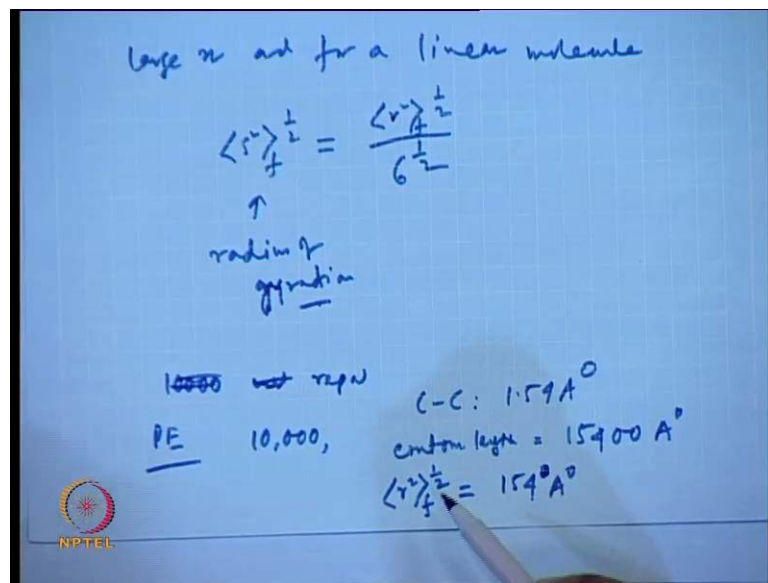 large n and for a linear molecule
⟨s²⟩f^1/2 = ⟨r²⟩f^1/2 / 6^1/2
↑
radius of
gyration
10000 repn
C-C: 1.54 A°
PE 10,000, contour length = 15400 A°
⟨r²⟩f^1/2 = 154 A°
NPTEL